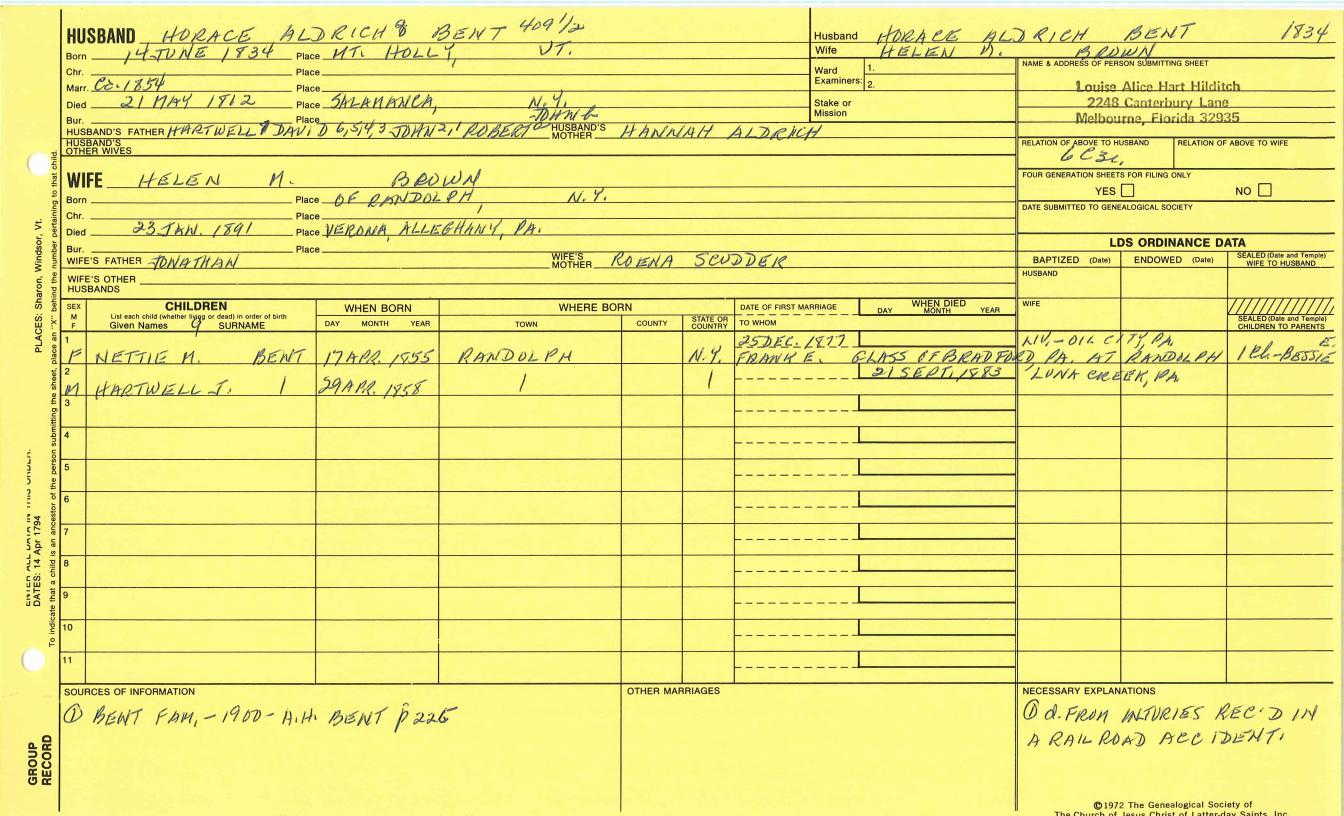 HUSBAND HORACE ALDRICH 8 BENT 409 1/2
Born 14 JUNE 1834 Place MT. HOLLY, VT.
Chr. Place
Marr. Cc. 1854 Place
Died 21 MAY 1812 Place SALAMANCA, N.Y.
Bur. Place
HUSBAND'S FATHER HARTWELL 7 DAVID 6,5,4,3 JOHN 2,1 ROBERT HUSBAND'S MOTHER HANNAH ALDRICH
HUSBAND'S OTHER WIVES
WIFE HELEN M. BROWN
Born Place OF RANDOLPH, N.Y.
Chr. Place
Died 23 JAN. 1891 Place VERONA, ALLEGHANY, PA.
Bur. Place
WIFE'S FATHER JONATHAN WIFE'S MOTHER ROENA SCUDDER
WIFE'S OTHER HUSBANDS
Husband HORACE ALDRICH BENT 1834
Wife HELEN M. BROWN
Ward Examiners: 1. 2.
Stake or Mission
NAME & ADDRESS OF PERSON SUBMITTING SHEET
Louise Alice Hart Hilditch
2248 Canterbury Lane
Melbourne, Florida 32935
RELATION OF ABOVE TO HUSBAND RELATION OF ABOVE TO WIFE
6C3r.
FOUR GENERATION SHEETS FOR FILING ONLY
YES NO
DATE SUBMITTED TO GENEALOGICAL SOCIETY
LDS ORDINANCE DATA
BAPTIZED (Date) ENDOWED (Date) SEALED (Date and Temple) WIFE TO HUSBAND
HUSBAND
WIFE
SEALED (Date and Temple) CHILDREN TO PARENTS
SEX M F
CHILDREN
List each child (whether living or dead) in order of birth
Given Names 9 SURNAME
WHEN BORN
DAY MONTH YEAR
WHERE BORN
TOWN COUNTY STATE OR COUNTRY
DATE OF FIRST MARRIAGE
TO WHOM
WHEN DIED
DAY MONTH YEAR
1 25 DEC. 1877 LIV.-OIL CITY, PA E.
F NETTIE M. BENT 17 APR. 1855 RANDOLPH N.Y. FRANK E. GLASS OF BRADFORD, PA. AT RANDOLPH 1 Ch.-BESSIE
2 21 SEPT. 1883 LUNA CREEK, PA
M HARTWELL J. 1 29 APR. 1858 1 1
3
4
5
6
7
8
9
10
11
SOURCES OF INFORMATION
① BENT FAM, - 1900 - A.H. BENT p 225
OTHER MARRIAGES
NECESSARY EXPLANATIONS
① d. FROM INJURIES REC'D IN
A RAILROAD ACCIDENT.
©1972 The Genealogical Society of
The Church of Jesus Christ of Latter-day Saints, Inc.
PLACES: Sharon, Windsor, Vt.
ENTER ALL DATA IN THIS ORDER:
DATES: 14 Apr 1794
To indicate that a child is an ancestor of the person submitting the sheet, place an "X" behind the number pertaining to that child.
GROUP
RECORD